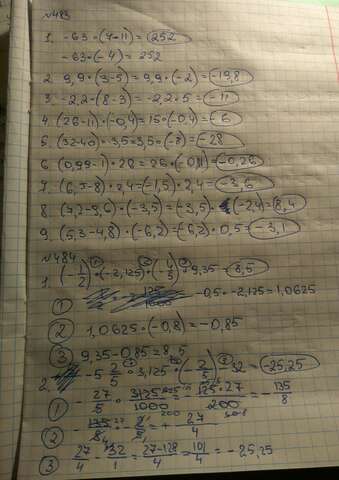 №483
1. -63·(7-11)=252
-63·(-4)=252
2. 9,9·(3-5)=9,9·(-2)=-19,8
3. -2,2·(8-3)=-2,2·5=-11
4. (26-11)·(-0,4)=15·(-0,4)=-6
5. (32-40)·3,5=3,5·(-8)=-28
6. (0,99-1)·28=26·(-0,01)=-0,26
7. (6,5-8)·2,4=(-1,5)·2,4=-3,6
8. (7,2-9,6)·(-3,5)=(-3,5)·(-2,4)=8,4
9. (5,3-4,8)·(-6,2)=(-6,2)·0,5=-3,1
№484
1. (-1/2)·(-2,125)·(-4/5)+9,35=8,5
① -0,5·-2,125=1,0625
② 1,0625·(-0,8)=-0,85
③ 9,35-0,85=8,5
2. -5 2/5·3,125·(-2/5)-32=-25,25
① -27/5·3125/1000=-125·27/200=-135/8
② =+27/4
③ 27/4-32/1=27-128/4=101/4=-25,25